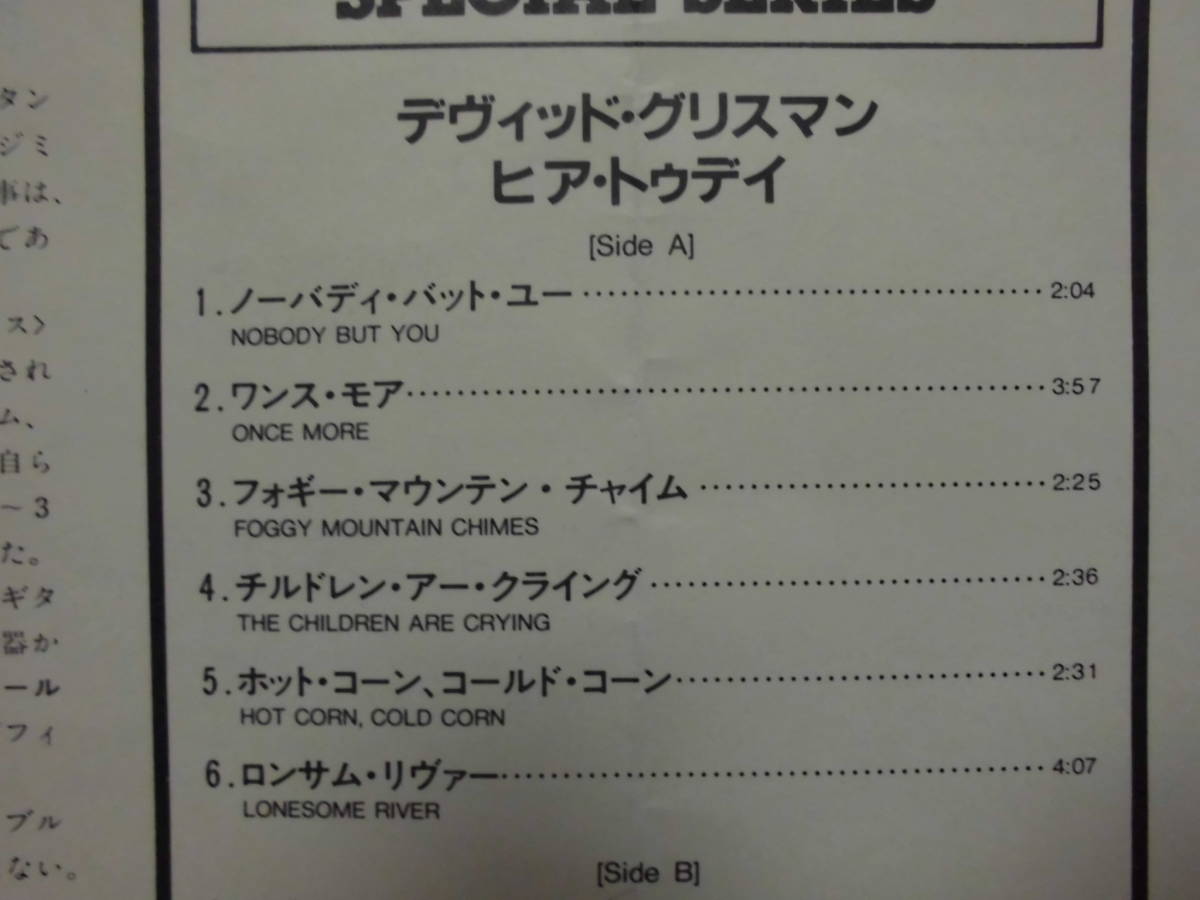 SPECIAL SERIES
デヴィッド・グリスマン
ヒア・トゥデイ
[Side A]
1.ノーバディ・バット・ユー 2:04
NOBODY BUT YOU
2.ワンス・モア 3:57
ONCE MORE
3.フォギー・マウンテン・チャイム 2:25
FOGGY MOUNTAIN CHIMES
4.チルドレン・アー・クライング 2:36
THE CHILDREN ARE CRYING
5.ホット・コーン、コールド・コーン 2:31
HOT CORN, COLD CORN
6.ロンサム・リヴァー 4:07
LONESOME RIVER
[Side B]
タン
ジミ
事は、
であ
ス〉
され
ム、
自ら
～3
た。
ギタ
器か
ール
フィ
ブル
ない。